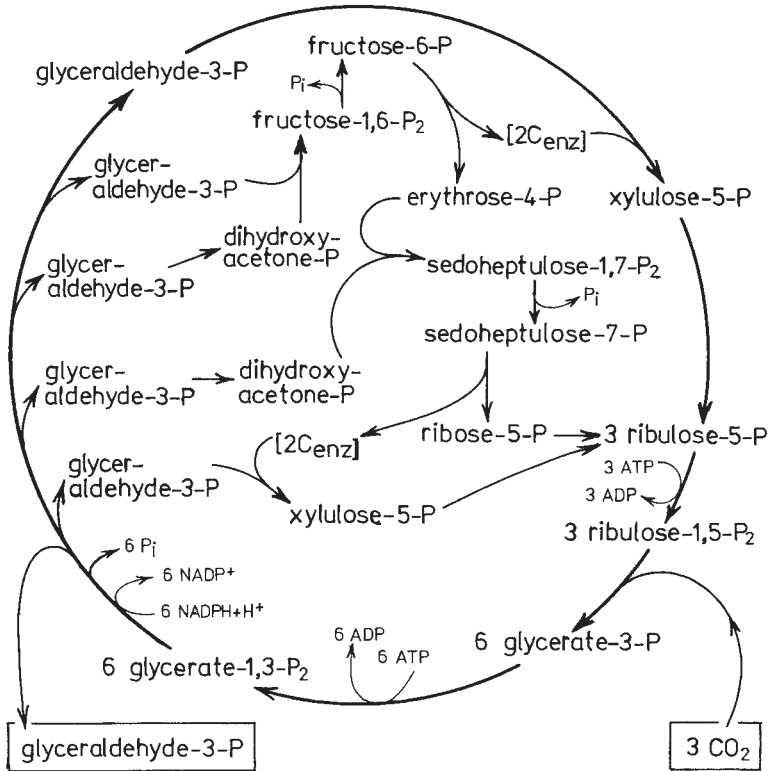 fructose-6-P
glyceraldehyde-3-P
Pi
fructose-1,6-P₂
[2Cenz]
glycer-
aldehyde-3-P
erythrose-4-P
xylulose-5-P
dihydroxy-
acetone-P
glycer-
aldehyde-3-P
sedoheptulose-1,7-P₂
Pi
sedoheptulose-7-P
glycer-
aldehyde-3-P
dihydroxy-
acetone-P
[2Cenz]
ribose-5-P
3 ribulose-5-P
glycer-
aldehyde-3-P
3 ATP
3 ADP
xylulose-5-P
3 ribulose-1,5-P₂
6 Pi
6 NADP+
6 NADPH+H+
6 ADP
6 ATP
6 glycerate-3-P
6 glycerate-1,3-P₂
glyceraldehyde-3-P
3 CO₂